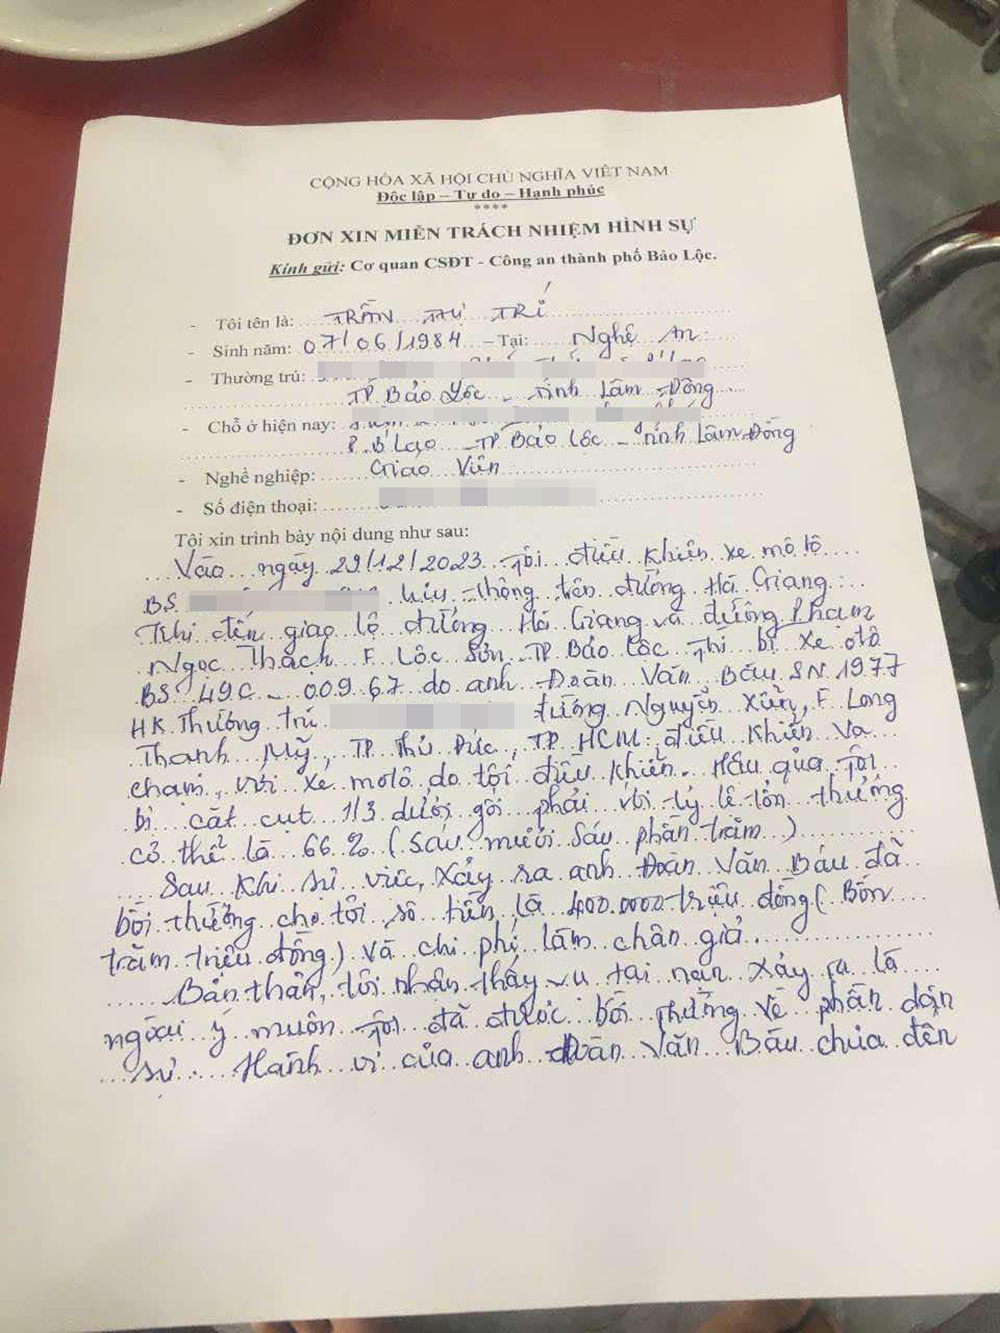 CỘNG HÒA XÃ HỘI CHỦ NGHĨA VIỆT NAM
Độc lập – Tự do – Hạnh phúc
****
ĐƠN XIN MIỄN TRÁCH NHIỆM HÌNH SỰ
Kính gửi: Cơ quan CSĐT - Công an thành phố Bảo Lộc.
- Tôi tên là: TRẦN THỊ TRÍ
- Sinh năm: 07/06/1984 – Tại: Nghệ An
- Thường trú:
TP Bảo Lộc - tỉnh Lâm Đồng
- Chỗ ở hiện nay:
P. B'Lao - TP Bảo Lộc - tỉnh Lâm Đồng
- Nghề nghiệp: Giáo Viên
- Số điện thoại:
Tôi xin trình bày nội dung như sau:
Vào ngày 29/12/2023 tôi điều khiển xe mô tô
BS lưu thông trên đường Hà Giang.
Khi đến giao lộ đường Hà Giang và đường Phạm
Ngọc Thạch F. Lộc Sơn - TP Bảo Lộc thì bị xe ôtô
BS 49C - 009.67 do anh Đoàn Văn Báu SN 1977
HK Thường trú đường Nguyễn Xiển, F. Long
Thạnh Mỹ, TP Thủ Đức, TP HCM điều khiển va
chạm với xe môtô do tôi điều khiển. Hậu quả tôi
bị cắt cụt 1/3 dưới gối phải với tỷ lệ tổn thương
cơ thể là 66% (Sáu mươi sáu phần trăm)
Sau khi sự việc xảy ra anh Đoàn Văn Báu đã
bồi thường cho tôi số tiền là 400.0000 triệu đồng (Bốn
trăm triệu đồng) và chi phí làm chân giả.
Bản thân, tôi nhận thấy vụ tai nạn xảy ra là
ngoài ý muốn tôi đã được bồi thường về phần dân
sự. Hành vi của anh Đoàn Văn Báu chưa đến